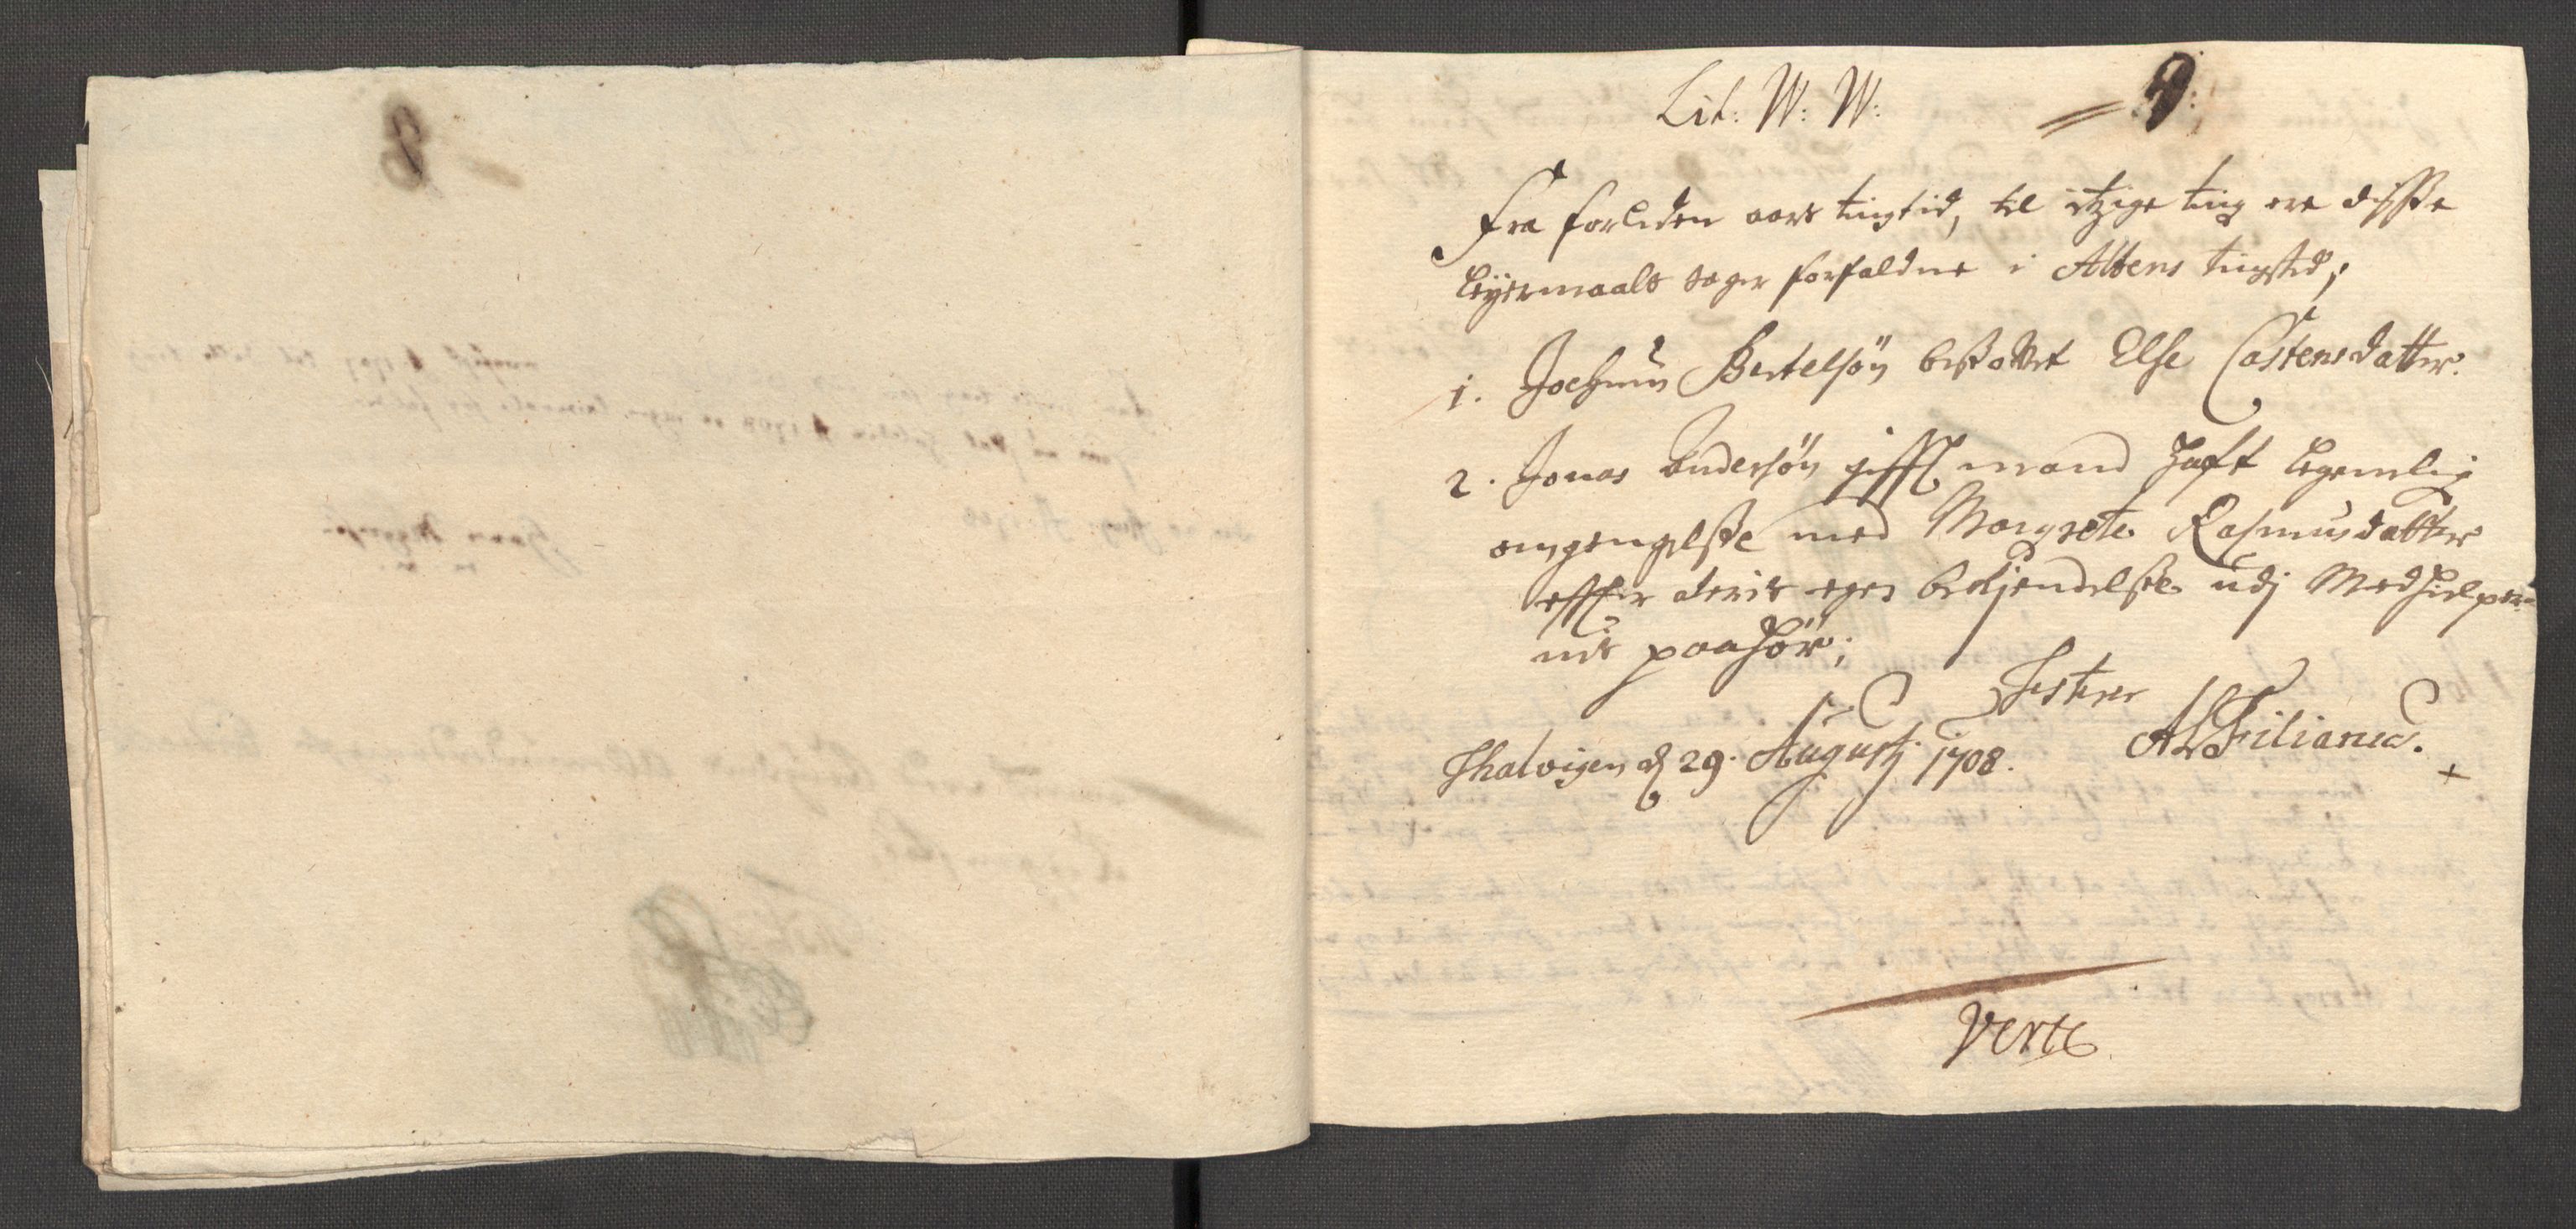 Lit: W: W:
9:
Fra forleden aars tingtid, til itzige ting ere disse
leyermaals sager forfaldne i Altens tingsted;
1. Jochum Bertelsön besofvet Else Castensdatter.
2. Jonas Andersön gifft mand haft legemlig
omgengelsse med Margrete Rasmusdatter
effter deris egen bekjendelsse udj Medhielper-
nis paahör;
Testerer
Thalvigen d 29. Augustj 1708.
Filianus.
Verte